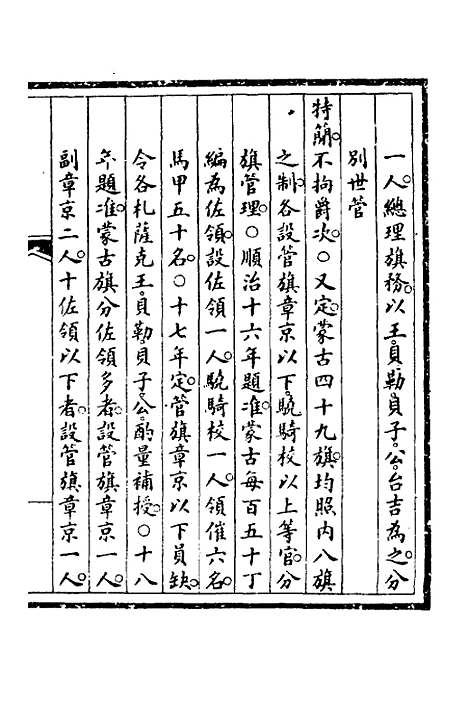 一人。總理旗務。以王。貝勒。貝子。公。台吉為之。分
別世管
特簡。不拘爵次。○又定。蒙古四十九旗。均照內八旗
之制。各設管旗章京以下。驍騎校以上等官。分
旗管理。○順治十六年題准。蒙古每百五十丁
編為佐領。設佐領一人。驍騎校一人。領催六名。
馬甲五十名。○十七年定。管旗章京以下員缺。
令各札薩克王。貝勒。貝子。公。酌量補授。○十八
年題准。蒙古旗分佐領多者。設管旗章京一人。
副章京二人。十佐領以下者。設管旗章京一人。